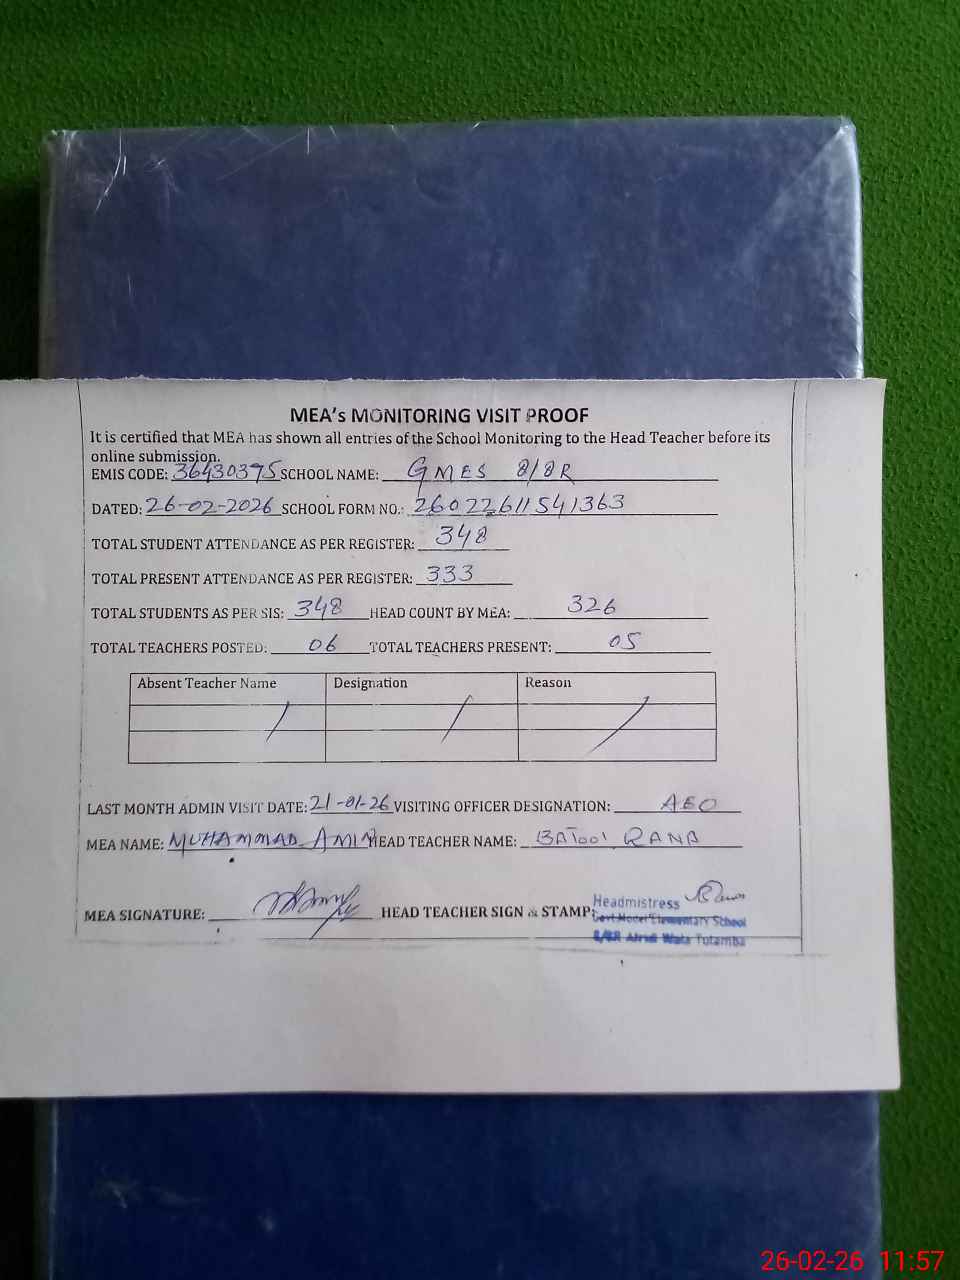 MEA's MONITORING VISIT PROOF
It is certified that MEA has shown all entries of the School Monitoring to the Head Teacher before its
online submission.
EMIS CODE: 36430375 SCHOOL NAME: GMES 8/8R
DATED: 26-02-2026 SCHOOL FORM NO.: 26022611541363
TOTAL STUDENT ATTENDANCE AS PER REGISTER: 348
TOTAL PRESENT ATTENDANCE AS PER REGISTER: 333
TOTAL STUDENTS AS PER SIS: 348 HEAD COUNT BY MEA: 326
TOTAL TEACHERS POSTED: 06 TOTAL TEACHERS PRESENT: 05
Absent Teacher Name Designation Reason
LAST MONTH ADMIN VISIT DATE: 21-01-26 VISITING OFFICER DESIGNATION: AEO
MEA NAME: MUHAMMAD AMIN HEAD TEACHER NAME: BATool RANA
MEA SIGNATURE: HEAD TEACHER SIGN & STAMP:
Headmistress
Govt Model Elementary School
8/8R Wala Tulamba
26-02-26 11:57